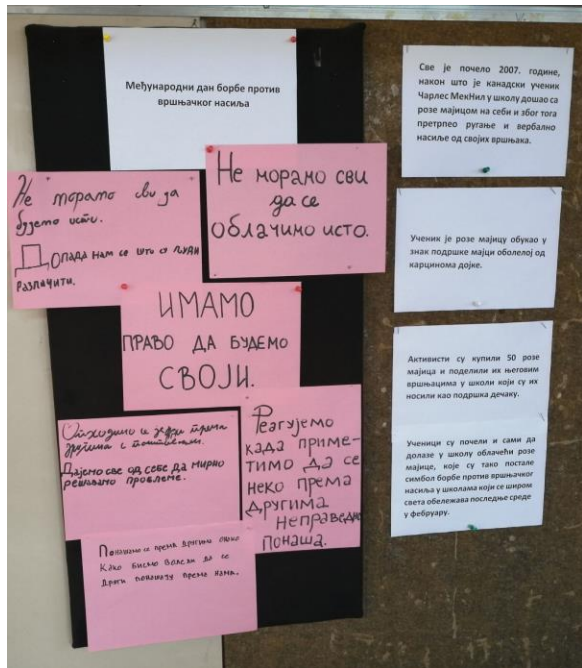 Међународни дан борбе против
вршњачког насиља
Не морамо сви да
будемо исти.
Допада нам се што су људи
различити.
Не морамо сви
да се
облачимо исто.
ИМАМО
ПРАВО ДА БУДЕМО
СВОЈИ.
једни према
другима с поштовањем.
Дајемо све од себе да мирно
решавамо проблеме.
Реагујемо
када приме-
тимо да се
неко према
другима
неправедно
понаша.
Понашамо се према другима онако
како бисмо волели да се
други понашају према нама.
Све је почело 2007. године,
након што је канадски ученик
Чарлес МекНил у школу дошао са
розе мајицом на себи и због тога
претрпео ругање и вербално
насиље од својих вршњака.
Ученик је розе мајицу обукао у
знак подршке мајци оболелој од
карцинома дојке.
Активисти су купили 50 розе
мајица и поделили их његовим
вршњацима у школи који су их
носили као подршка дечаку.
Ученици су почели и сами да
долазе у школу облачећи розе
мајице, које су тако постале
симбол борбе против вршњачког
насиља у школама који се широм
света обележава последње среде
у фебруару.